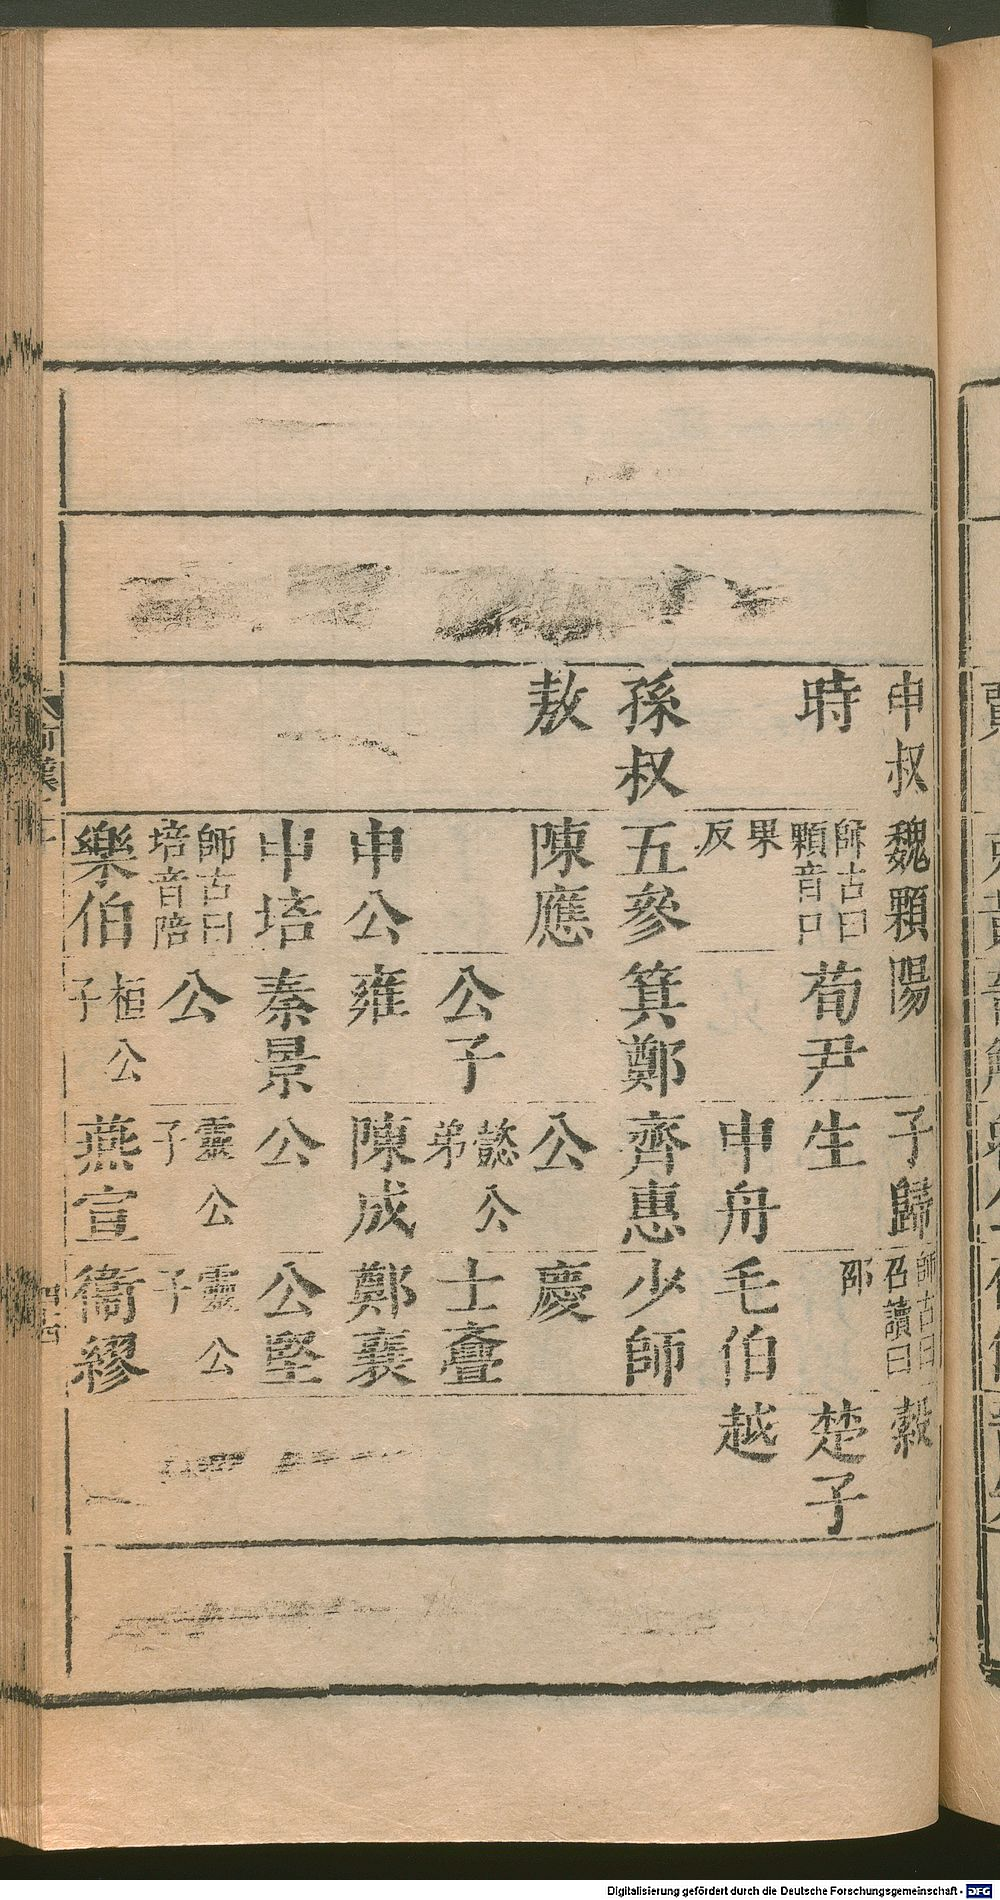 申叔魏顆陽子歸師古曰召讀曰縠
時師古曰顆音口荀尹生邵楚子
果反申舟毛伯越
孫叔五參箕鄭齊惠少師
敖陳應公慶
公子懿公弟士亹
申公雍陳成鄭襄
申培秦景公公堅
師古曰培音陪公靈公子靈公子
樂伯桓公子燕宣衞繆
Digitalisierung gefördert durch die Deutsche Forschungsgemeinschaft - DFG